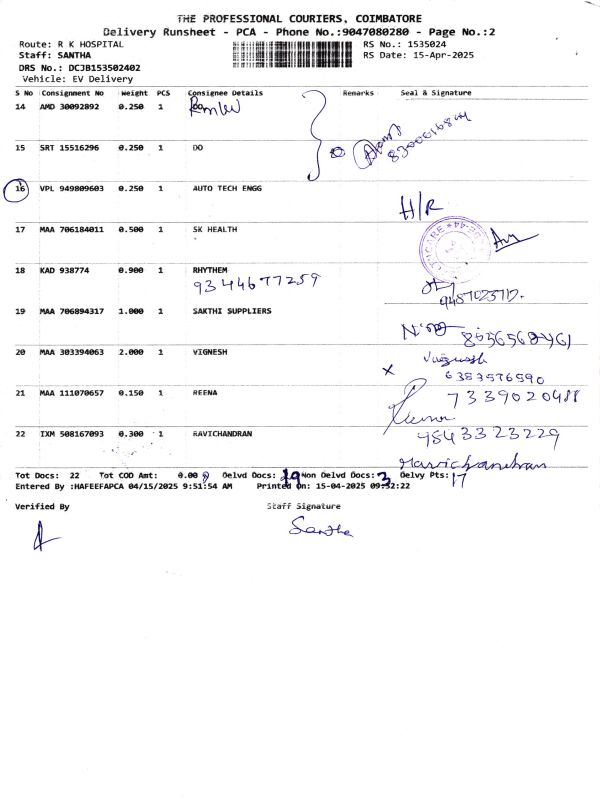 THE PROFESSIONAL COURIERS, COIMBATORE
Delivery Runsheet - PCA - Phone No.:9047080280 - Page No.:2
Route: R K HOSPITAL
RS No.: 1535024
Staff: SANTHA
RS Date: 15-Apr-2025
DRS No.: DCJB153502402
Vehicle: EV Delivery
S No Consignment No Weight PCS Consignee Details Remarks Seal & Signature
14 AMD 30092892 0.250 1
15 SRT 15516296 0.250 1 DO
16 VPL 949809603 0.250 1 AUTO TECH ENGG
H/R
17 MAA 706184011 0.500 1 SK HEALTH
18 KAD 938774 0.900 1 RHYTHEM
9344677259
19 MAA 706894317 1.000 1 SAKTHI SUPPLIERS
20 MAA 303394063 2.000 1 VIGNESH
x
6383576590
21 MAA 111070657 0.150 1 REENA
7339020488
22 IXM 508167093 0.300 1 RAVICHANDRAN
9843323229
Ravichandran
Tot Docs: 22 Tot COD Amt: 0.00 Delvd Docs: 19 Non Delvd Docs: 3 Delvy Pts: 17
Entered By :HAFEEFAPCA 04/15/2025 9:51:54 AM Printed On: 15-04-2025 09:52:22
Verified By
Staff Signature
Santha